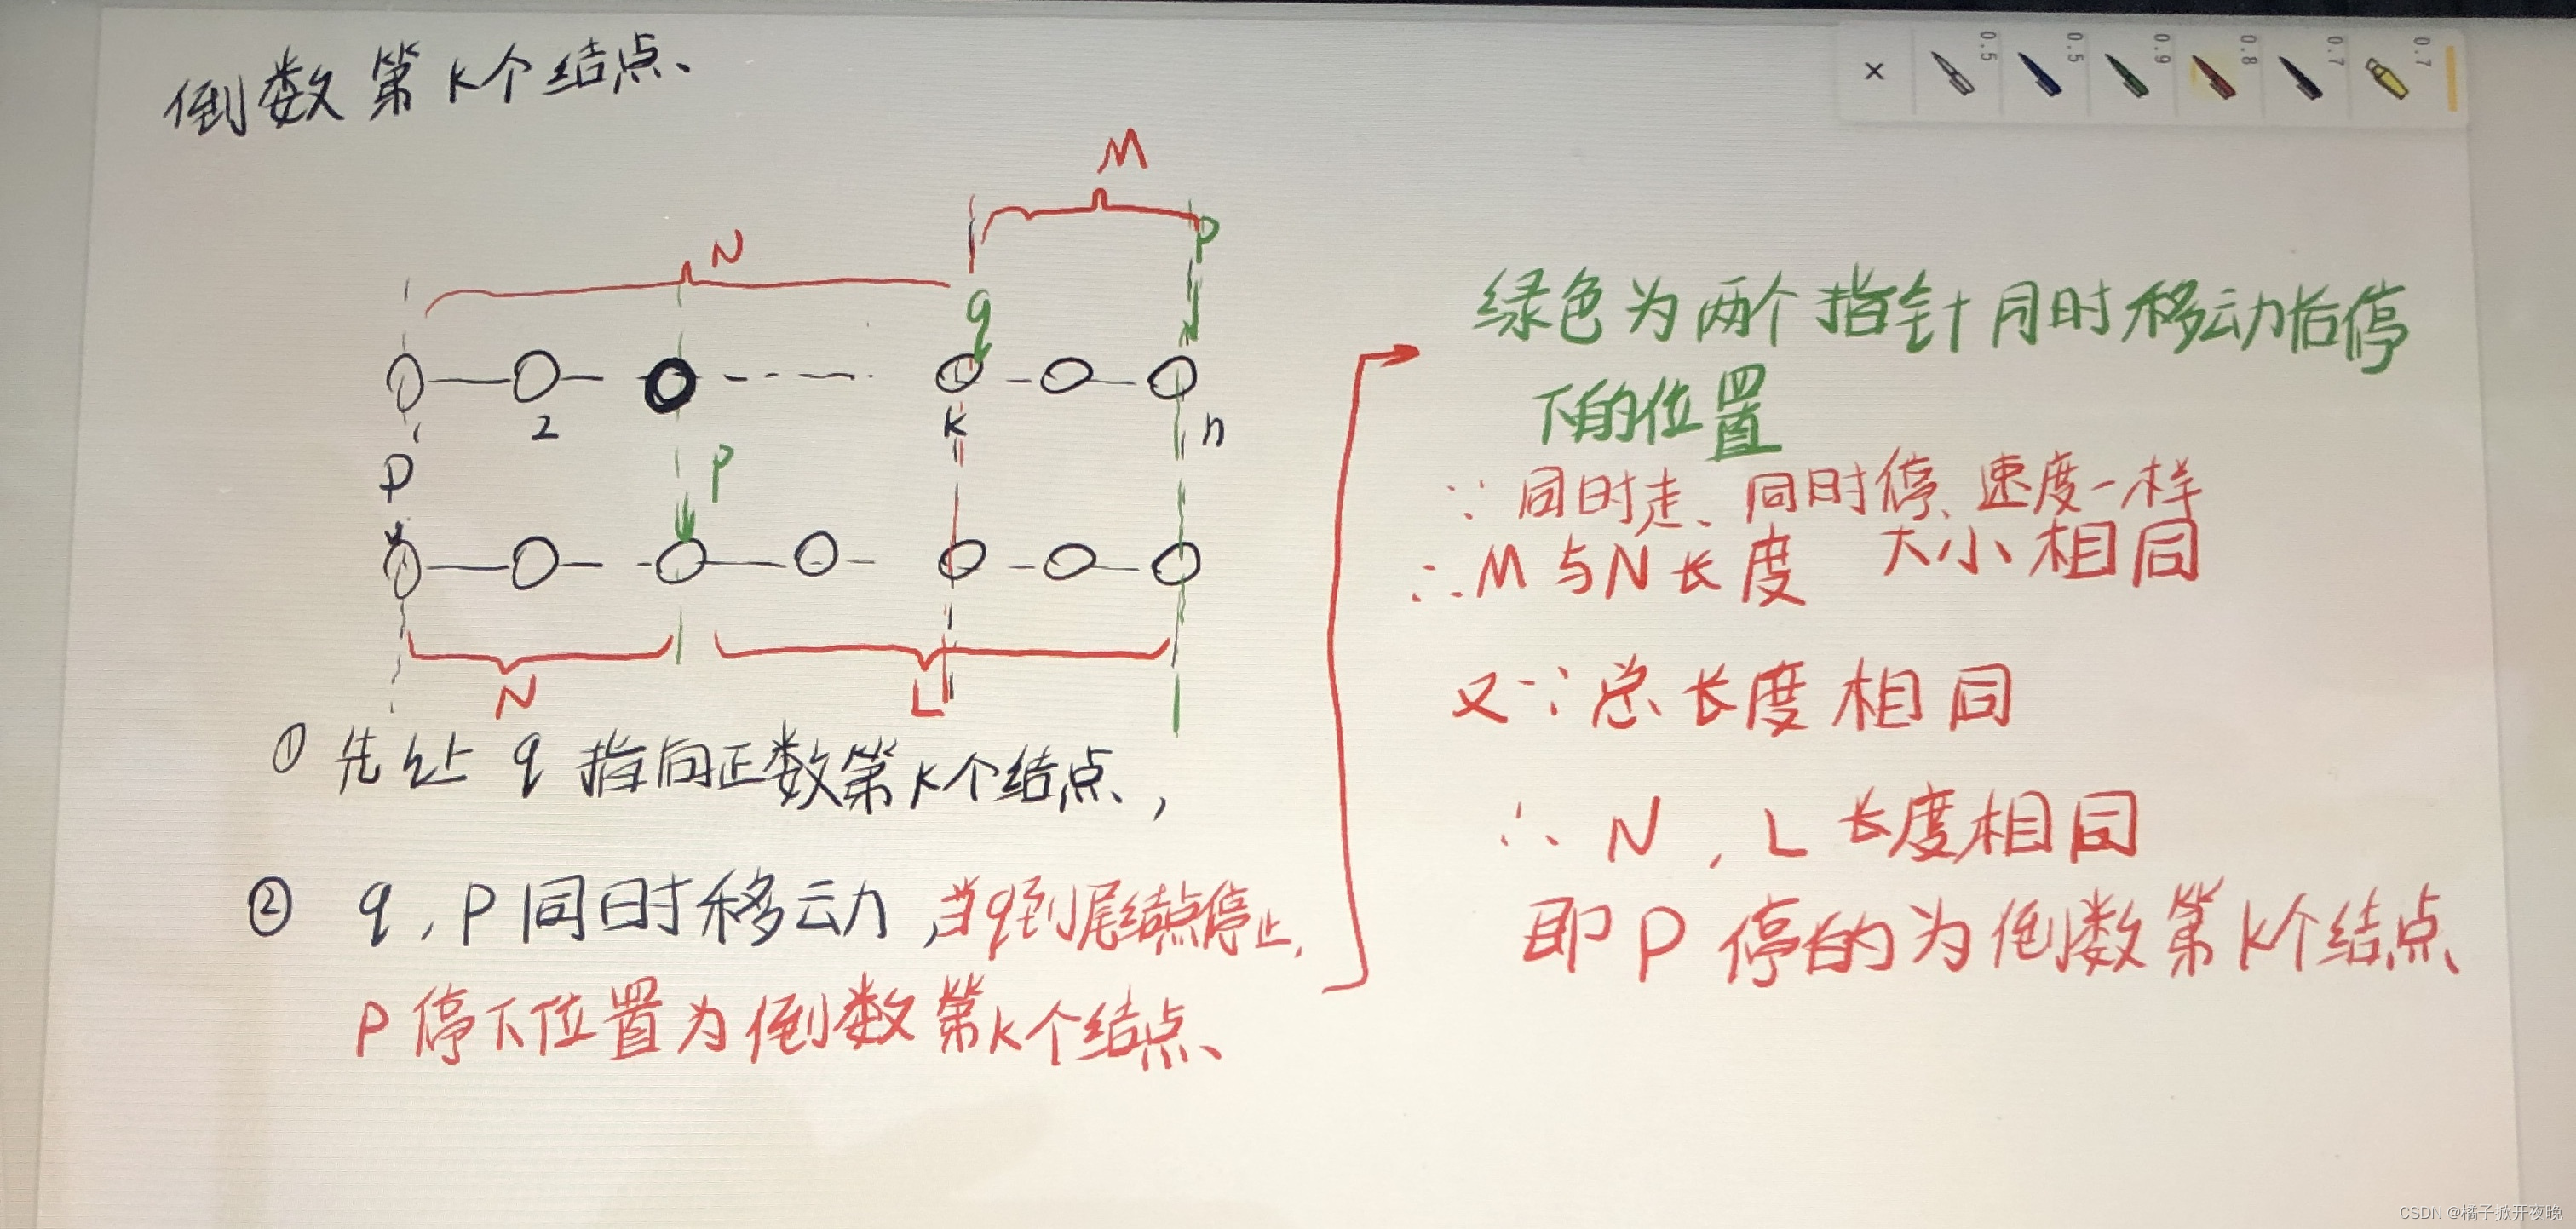 倒数第K个结点、
0.5
0.5
0.9
0.8
0.7
0.7
×
M
N
P
q
2
K
n
P
P
N
L
① 先让 q 指向正数第K个结点、,
② q, P同时移动,当q到尾结点停止,
P停下位置为倒数第K个结点、
绿色为两个指针同时移动后停
下的位置
∵ 同时走、同时停、速度一样
∴ M与N长度 大小相同
又∵总长度相同
∴ N, L长度相同
即P停的为倒数第K个结点、
CSDN @橘子掀开夜晚